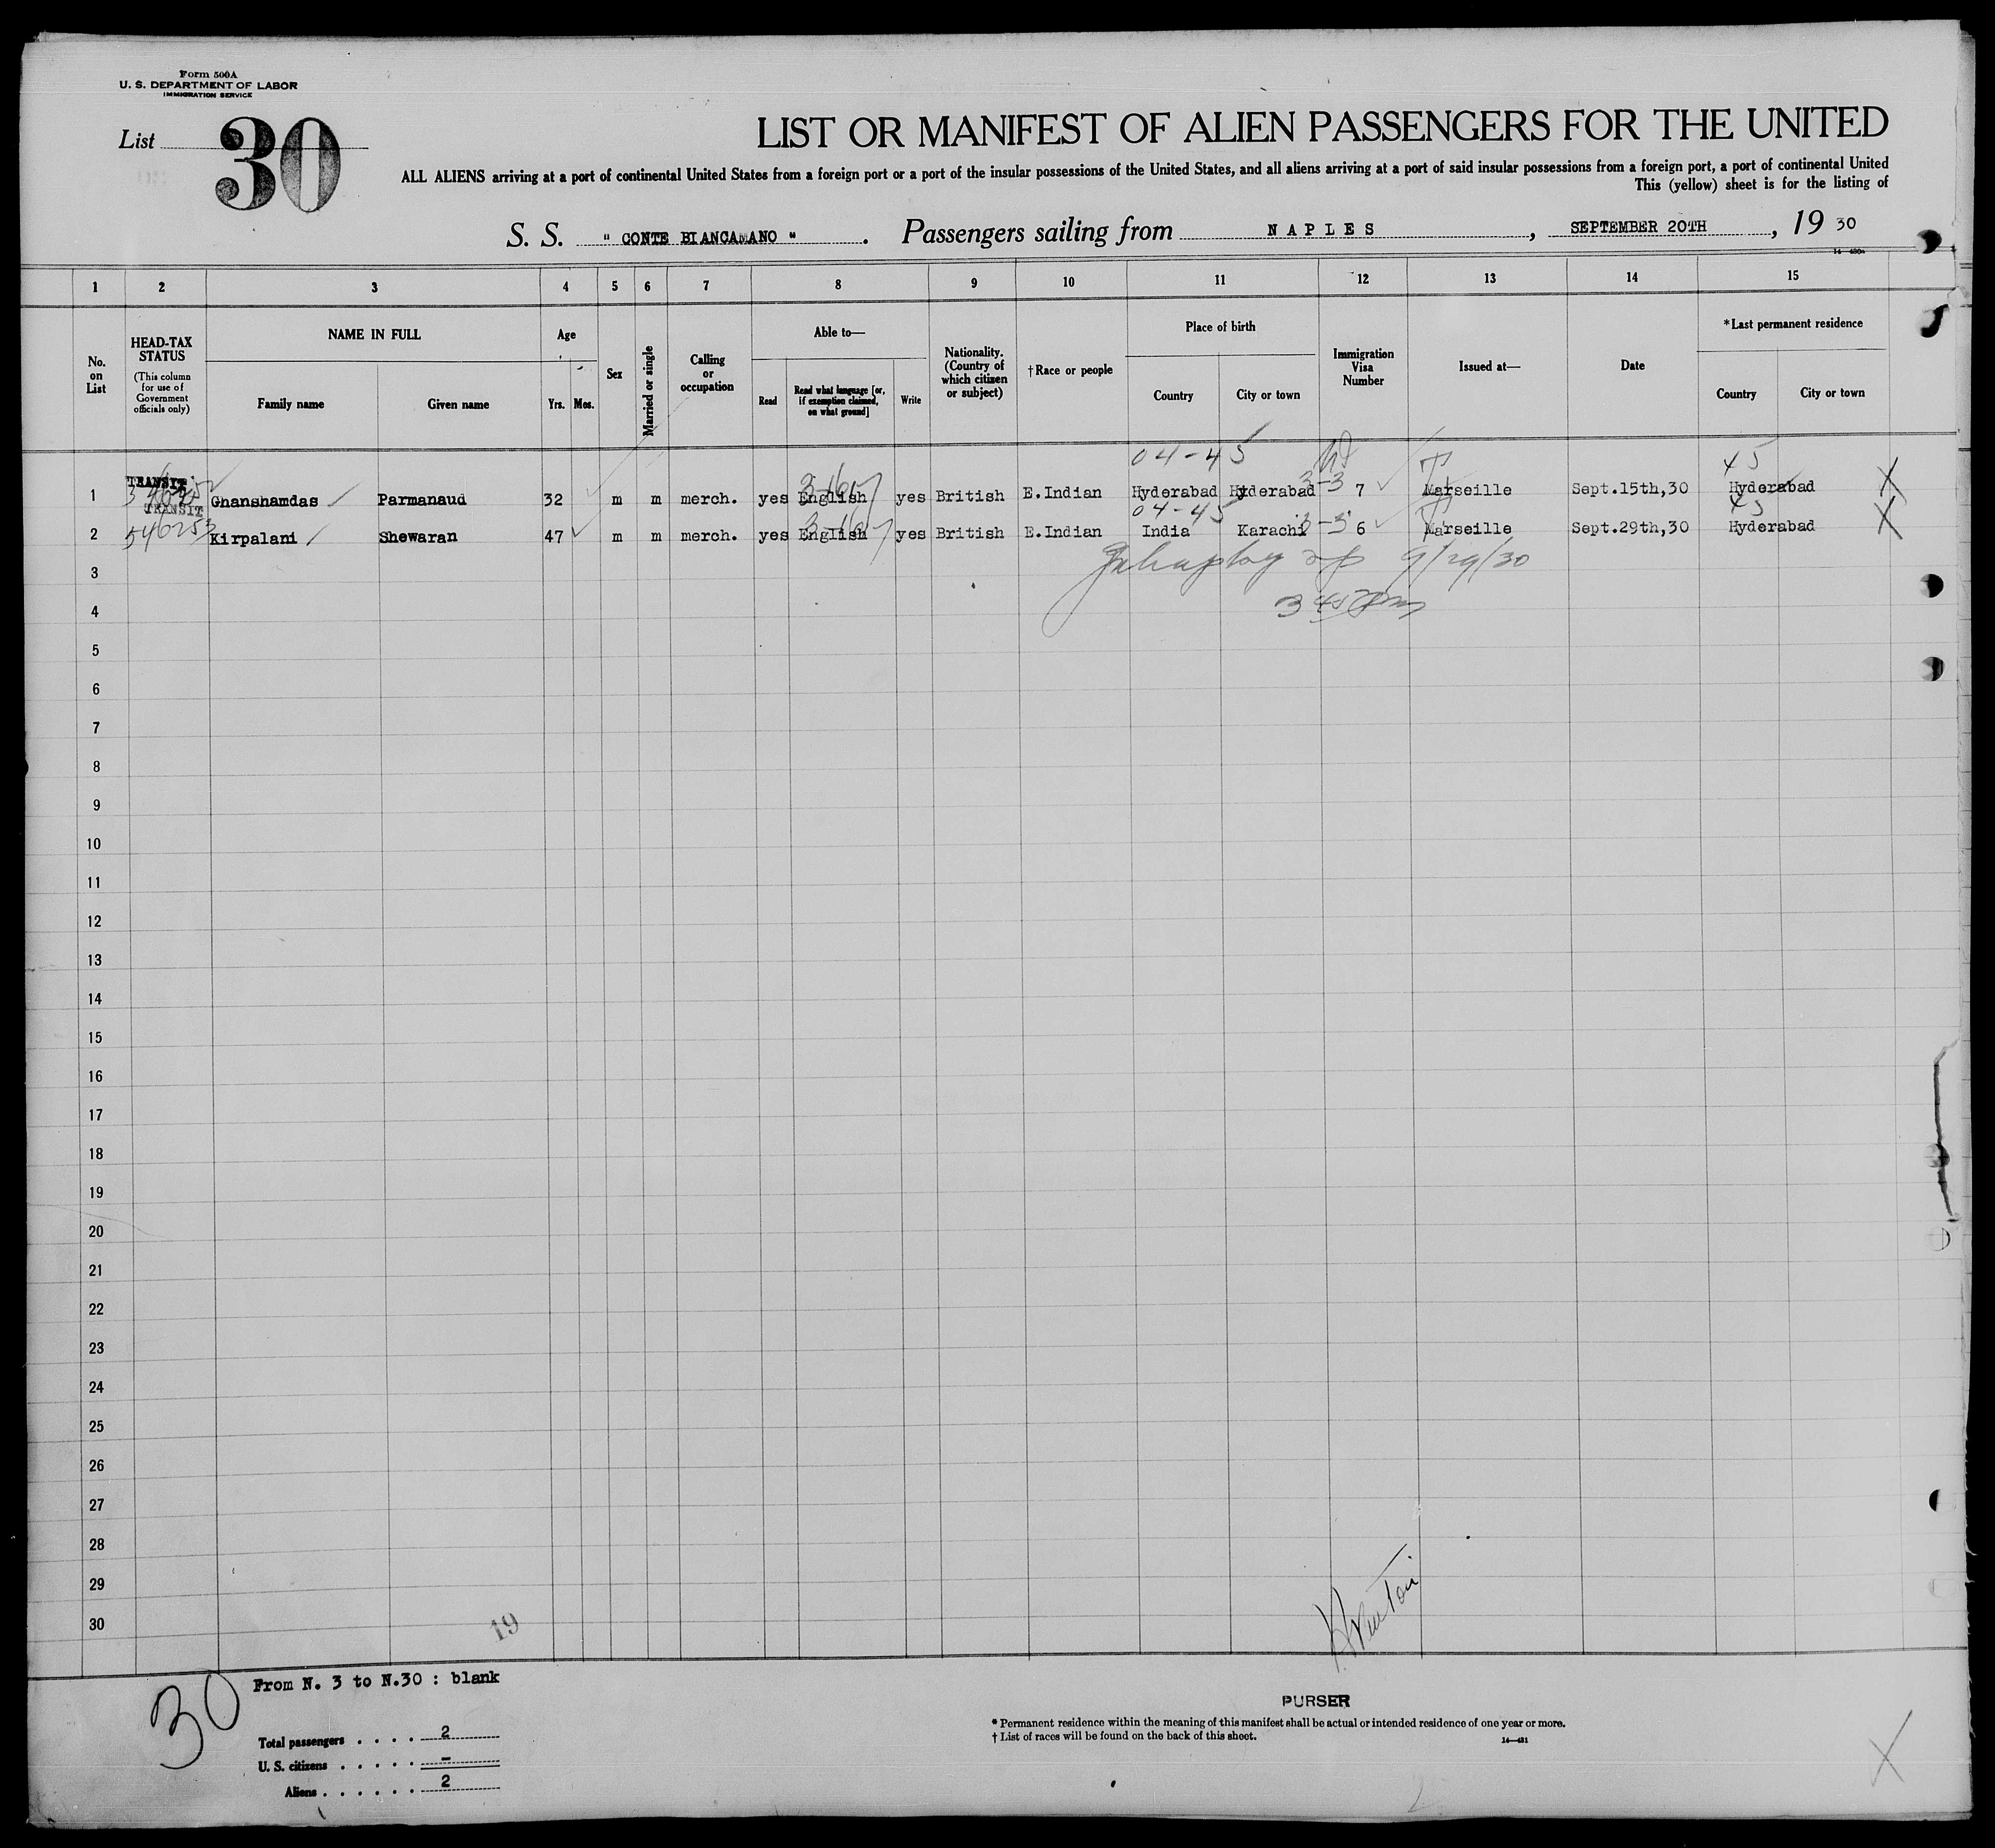 Form 500A
U. S. DEPARTMENT OF LABOR
IMMIGRATION SERVICE
List 30
LIST OR MANIFEST OF ALIEN PASSENGERS FOR THE UNITED
ALL ALIENS arriving at a port of continental United States from a foreign port or a port of the insular possessions of the United States, and all aliens arriving at a port of said insular possessions from a foreign port, a port of continental United
This (yellow) sheet is for the listing of
S. S. " CONTE BIANCAMANO " . Passengers sailing from NAPLES , SEPTEMBER 20TH , 19 30
1 2 3 4 5 6 7 8 9 10 11 12 13 14 15
No. on List
HEAD-TAX STATUS
(This column for use of Government officials only)
NAME IN FULL
Family name Given name
Age
Yrs. Mos.
Sex
Married or single
Calling or occupation
Able to—
Read
Read what language [or, if exemption claimed, on what ground]
Write
Nationality. (Country of which citizen or subject)
†Race or people
Place of birth
Country City or town
Immigration Visa Number
Issued at—
Date
*Last permanent residence
Country City or town
04-45 45
TRANSIT
1 Ghanshamdas Parmanaud 32 m m merch. yes English yes British E.Indian Hyderabad Hyderabad 3-3 7 Marseille Sept.15th,30 Hyderabad X
TRANSIT
04-45 45
2 Kirpalani Shewaran 47 m m merch. yes English yes British E.Indian India Karachi 6 Marseille Sept.29th,30 Hyderabad X
3 9/29/30
4 3 45
5
6
7
8
9
10
11
12
13
14
15
16
17
18
19
20
21
22
23
24
25
26
27
28
29
30
19
30
From N. 3 to N.30 : blank
Total passengers . . . . 2
U. S. citizens . . . . . –
Aliens . . . . . . 2
PURSER
* Permanent residence within the meaning of this manifest shall be actual or intended residence of one year or more.
† List of races will be found on the back of this sheet.
14—431
X